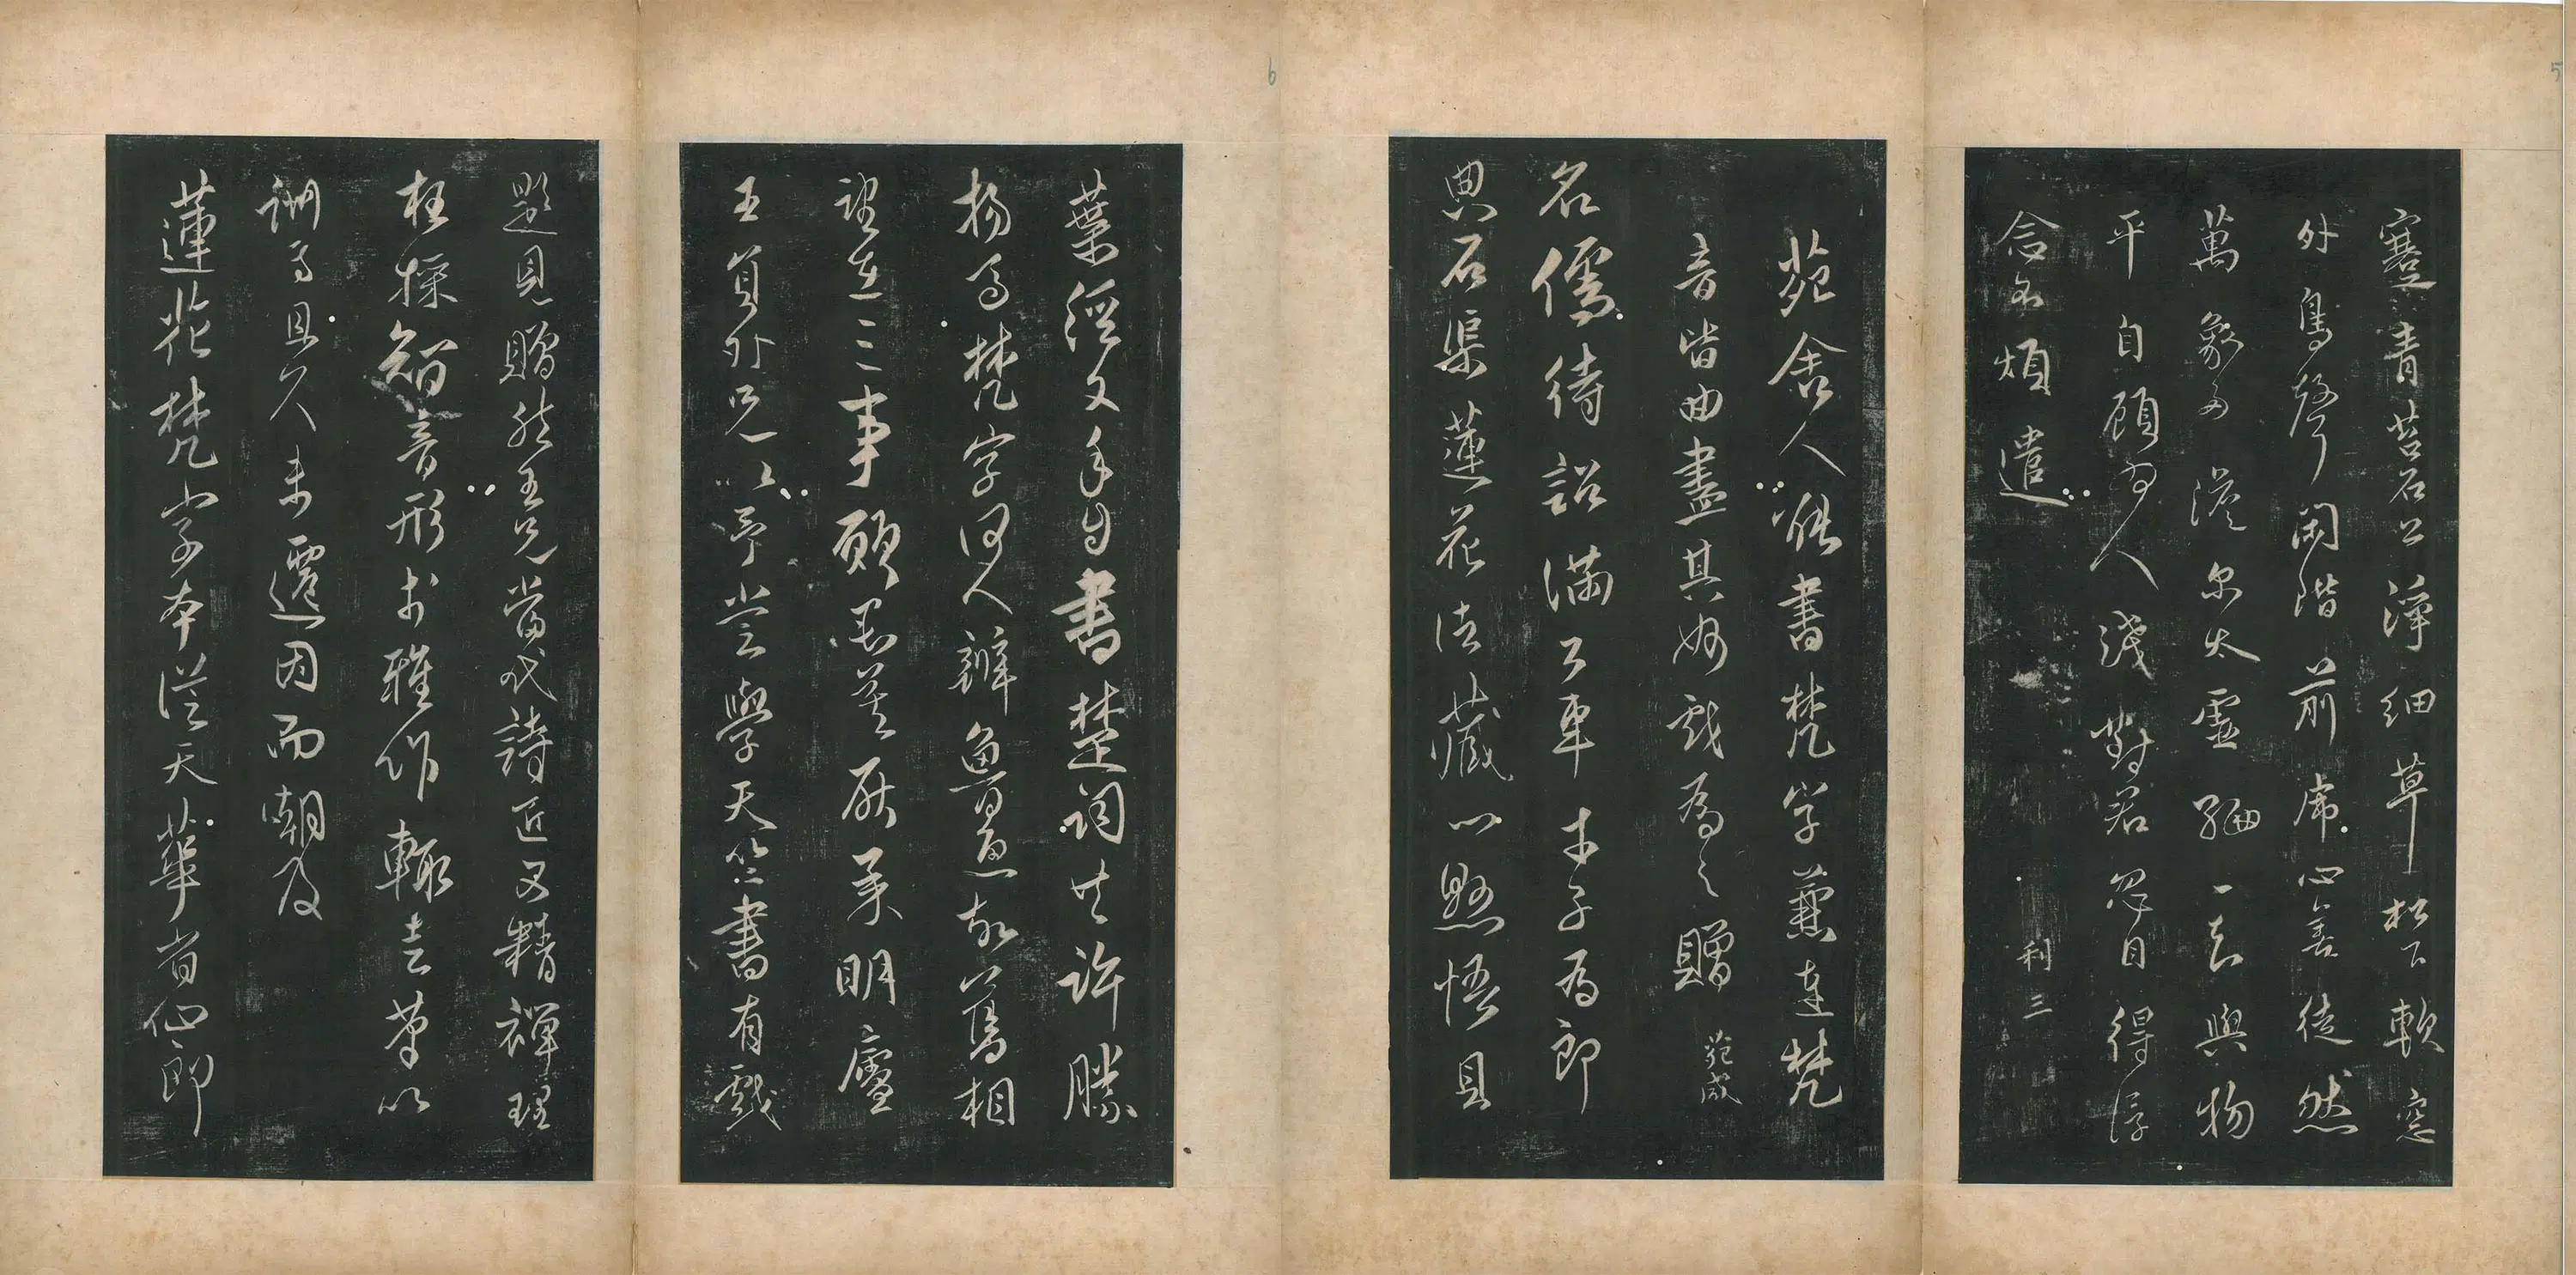 蹇青苔石上淨細草松下軟窓
外鳥聲閑階前虎心善徒然
萬象多澹尔太虛緬一知與物
平自顧為人淺對君忽自得浮
念不煩遣
利三
苑舍人能書梵字兼達梵
音皆曲盡其妙戲為之贈 苑咸
名儒待詔滿公車才子為郎
典石渠蓮花法藏心懸悟貝
葉經文手自書楚詞共許勝
揚馬梵字何人辨魯魚故舊相
望在三事願君莫厭承明廬
王員外兄以予嘗學天竺書有戲
題見贈然王兄當代詩匠又精禪理
枉採智音形於雅作輒走筆以
酬焉且久未遷因而嘲及
蓮花梵字本從天華省仙郎
6
5